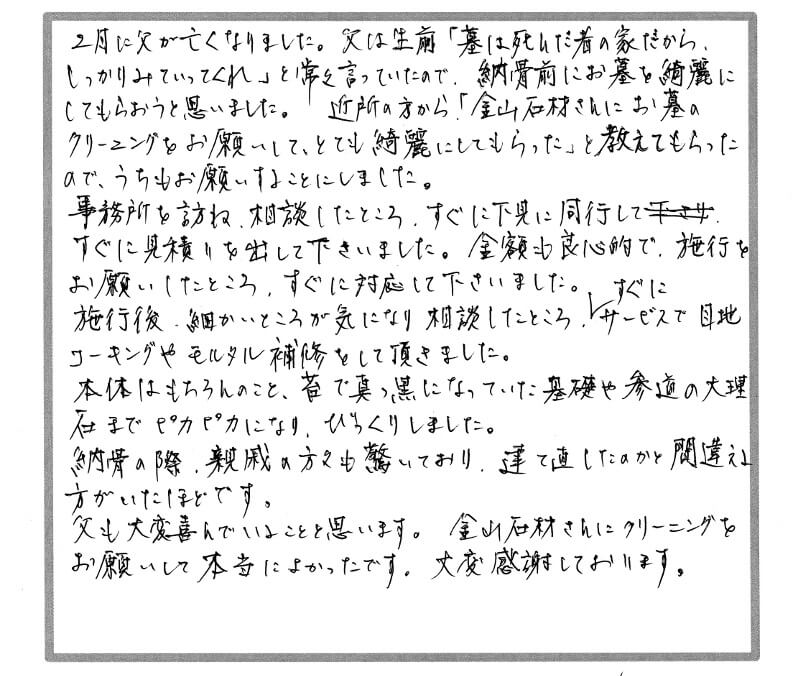 2月に父が亡くなりました。父は生前「墓は死んだ者の家だから、
しっかりみていってくれ」と常々言っていたので、納骨前にお墓を綺麗に
してもらおうと思いました。近所の方から「金山石材さんにお墓の
クリーニングをお願いして、とても綺麗にしてもらった」と教えてもらった
ので、うちもお願いすることにしました。
事務所を訪ね、相談したところ、すぐに下見に同行して下さり、
すぐに見積りを出して下さいました。金額も良心的で、施行を
お願いしたところ、すぐに対応して下さいました。
施行後、細かいところが気になり相談したところ、すぐにサービスで目地
コーキングやモルタル補修をして頂きました。
本体はもちろんのこと、苔で真っ黒になっていた基礎や参道の大理
石までピカピカになり、びっくりしました。
納骨の際、親戚の方々も驚いており、建て直したのかと間違える
方がいたほどです。
父も大変喜んでいることと思います。金山石材さんにクリーニングを
お願いして本当によかったです。大変感謝しております。